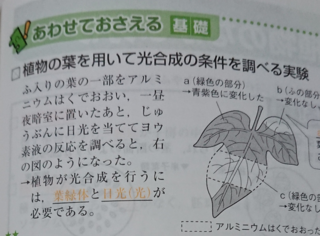 あわせておさえる 基礎
植物の葉を用いて光合成の条件を調べる実験
ふ入りの葉の一部をアルミ
ニウムはくでおおい，一昼
夜暗室に置いたあと，じゅ
うぶんに日光を当ててヨウ
素液の反応を調べると，右
の図のようになった。
→植物が光合成を行うに
は，葉緑体と日光(光)が
必要である。
a（緑色の部分）
→青紫色に変化した
b（ふの部分
→変化なし
c（緑色
→変化な
アルミニウムはくでおおった